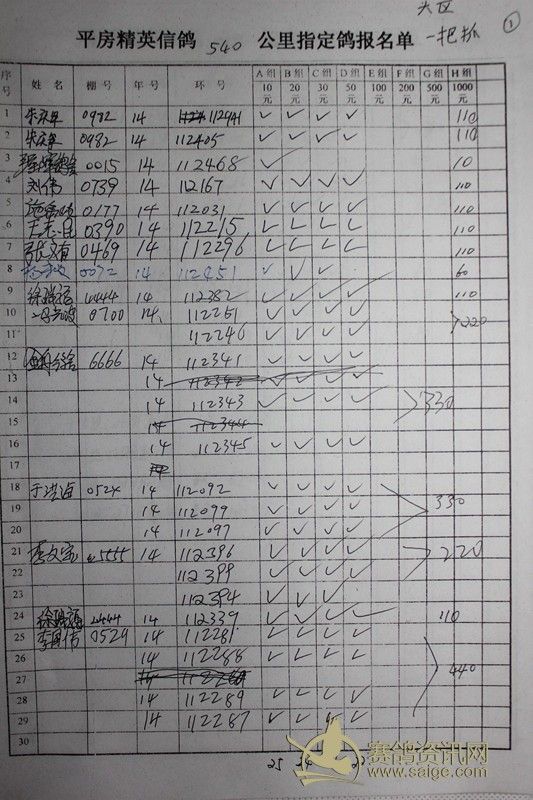 大区
①
平房精英信鸽 540 公里指定鸽报名单 一把抓
序号 姓名 棚号 年号 环号 A组10元 B组20元 C组30元 D组50元 E组100元 F组200元 G组500元 H组1000元
1 0982 14 112941 ✓ ✓ ✓ ✓ 110
2 0982 14 112405 ✓ ✓ ✓ ✓ 110
3 0015 14 112468 ✓ 10
4 刘伟 0739 14 112167 ✓ ✓ ✓ ✓ 110
5 0177 14 112031 ✓ ✓ ✓ ✓ 110
6 0390 14 112215 ✓ ✓ ✓ ✓ 110
7 0469 14 112296 ✓ ✓ ✓ ✓ 110
8 0072 14 112451 ✓ ✓ ✓ 60
9 4444 14 112382 ✓ ✓ ✓ ✓ 110
10 0700 14 112251 ✓ ✓ ✓ ✓ 220
11 112246 ✓ ✓ ✓ ✓
12 6666 14 112341 ✓ ✓ ✓ ✓
13 14 112342 ✓ ✓ ✓ ✓
14 14 112343 ✓ ✓ ✓ ✓ 330
15 14 112344
16 14 112345 ✓ ✓ ✓ ✓
17 14
18 于洪海 0524 14 112092 ✓ ✓ ✓ ✓
19 112099 ✓ ✓ ✓ ✓ 330
20 112097 ✓ ✓ ✓ ✓
21 李文宝 5555 14 112396 ✓ ✓ ✓ ✓ 220
22 112399 ✓ ✓ ✓ ✓
23 112394 ✓ ✓ ✓
24 4444 14 112339 ✓ ✓ ✓ ✓ 110
25 0529 14 112281 ✓ ✓ ✓ ✓
26 14 112286 ✓ ✓ ✓ ✓
27 440
28 14 112289 ✓ ✓ ✓ ✓
29 14 112287 ✓ ✓ ✓ ✓
30
25 24
赛鸽资讯网
www.saige.com